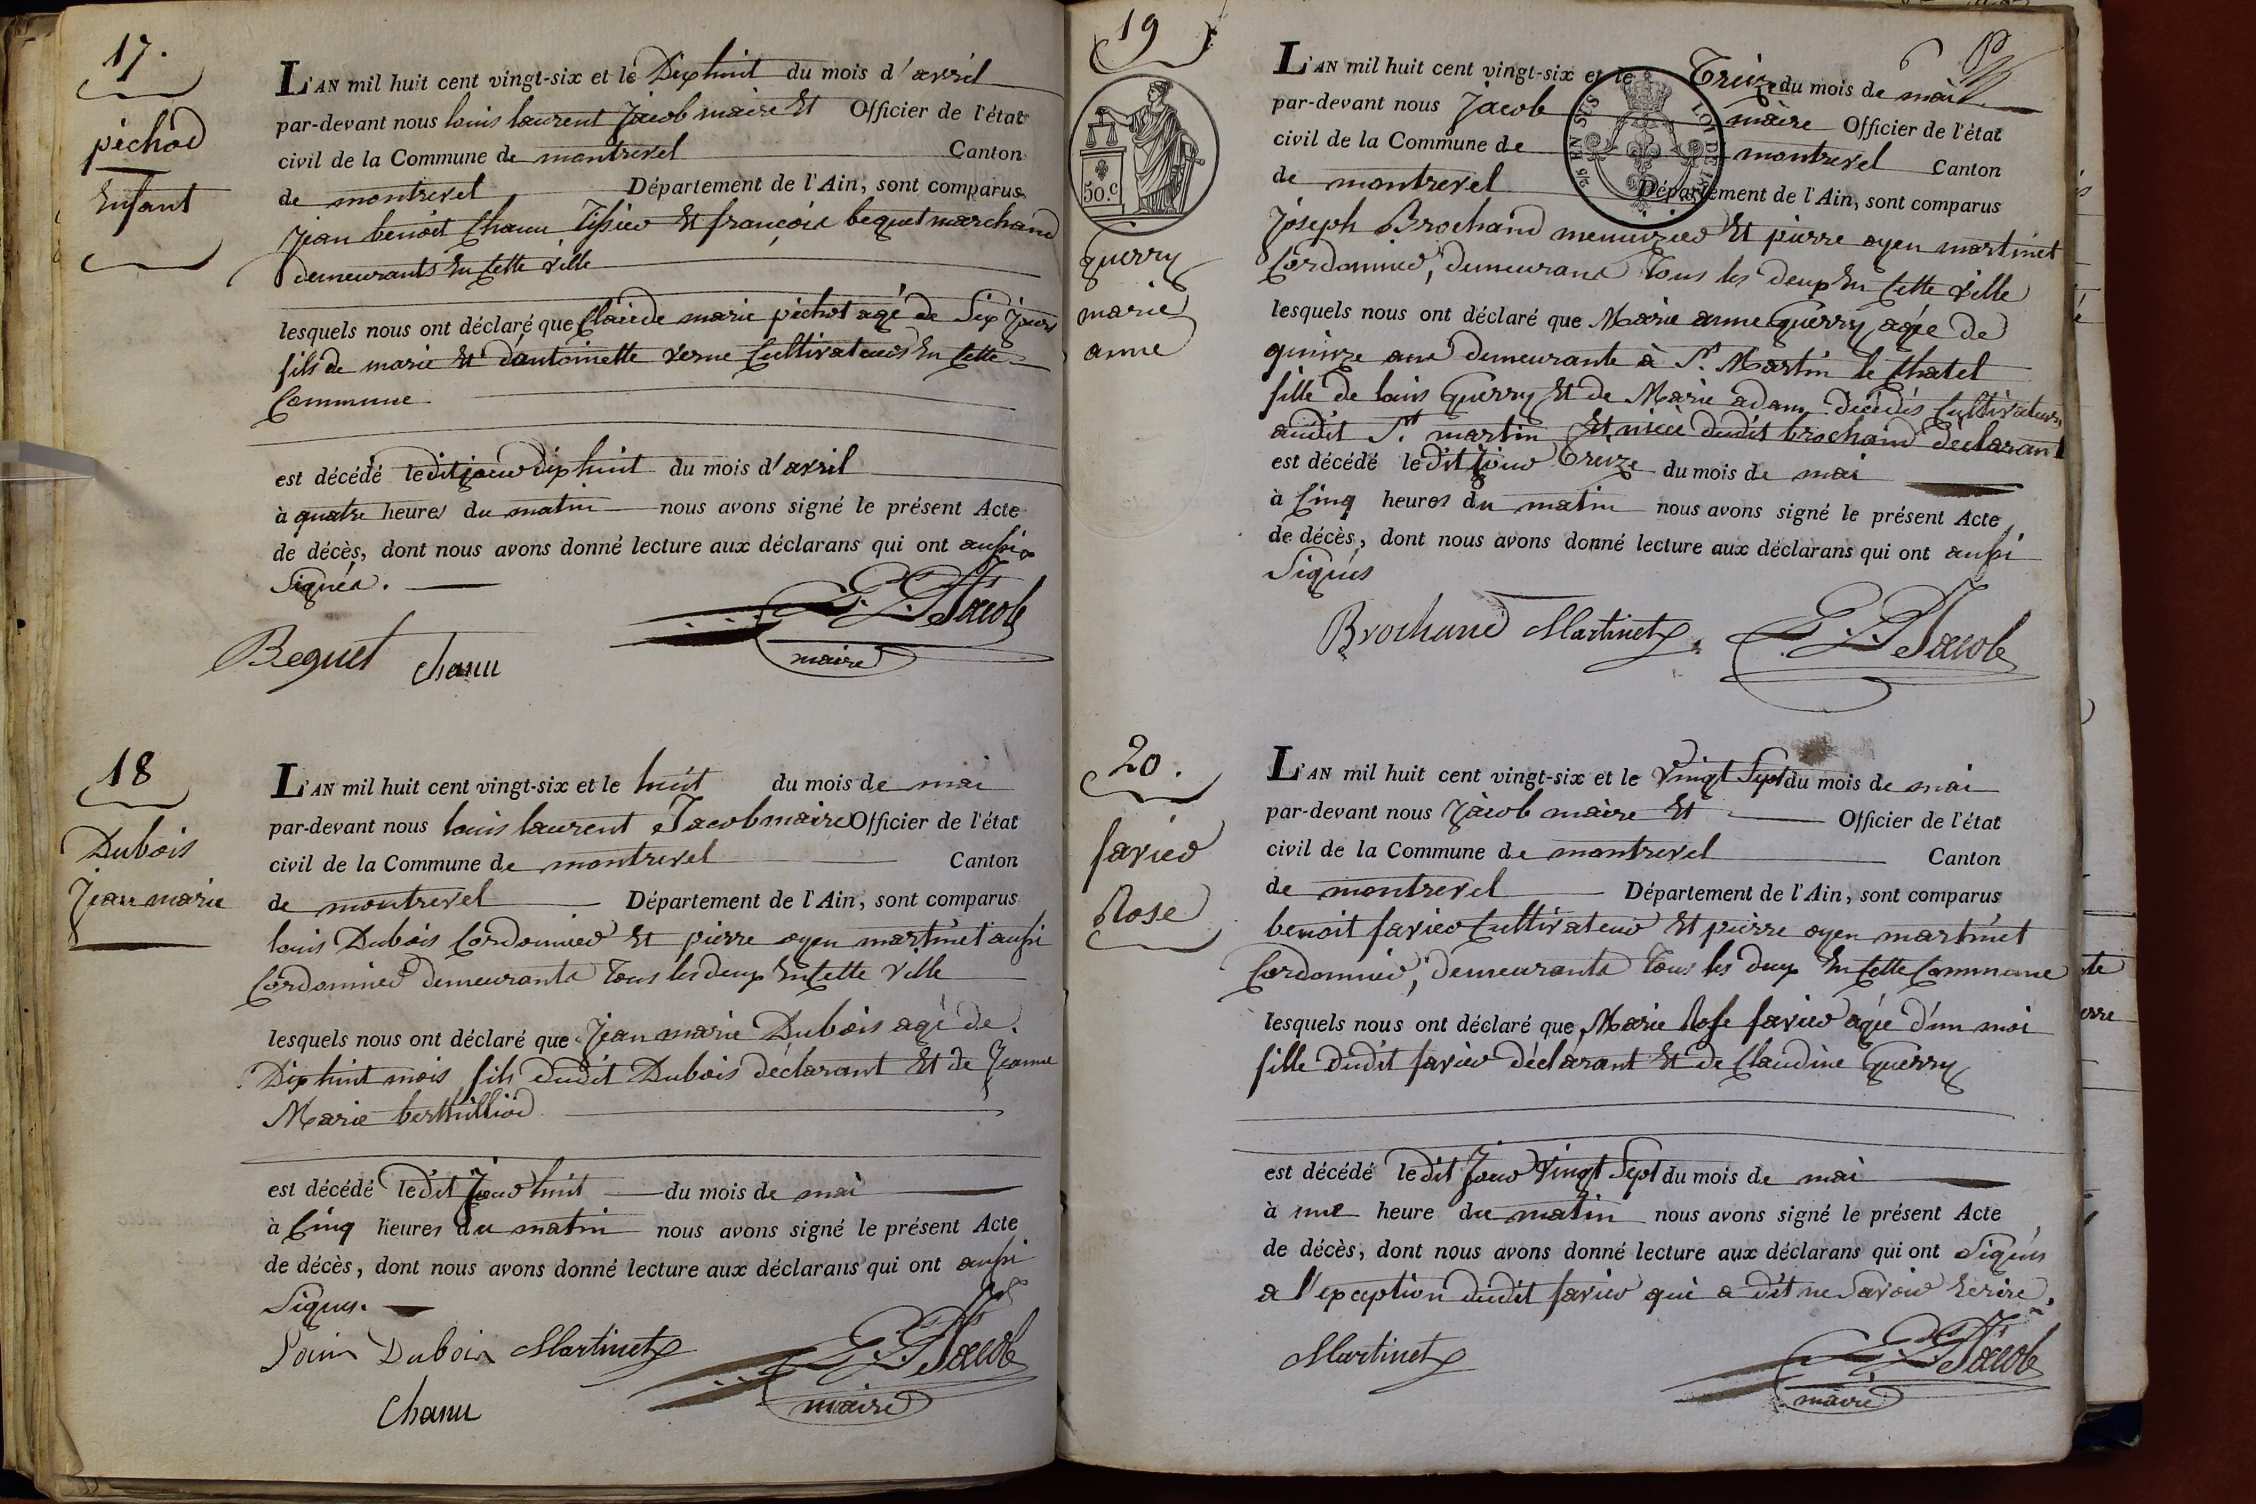 17.
pèchod
Enfant
L'AN mil huit cent vingt-six et le Dixhuit du mois d'avril
par-devant nous louis laurent Jacob maire Et Officier de l'état
civil de la Commune de montrevel Canton
de montrevel Département de l'Ain, sont comparus
Jean benoit Chanu Tissier Et françois bequet marchand
demeurants En Cette ville
lesquels nous ont déclaré que Claude marie pèchot agé de Six jours
fils de marie Et d'antoinette verne Cultivateurs En Cette
Commune
est décédé ledit jour dixhuit du mois d'avril
à quatre heures du matin nous avons signé le présent Acte
de décès, dont nous avons donné lecture aux déclarans qui ont aussi
Signés.
L. L. Jacob
Bequet Chanu maire
18
Dubois
Jean marie
L'AN mil huit cent vingt-six et le huit du mois de mai
par-devant nous louis laurent Jacob maire Officier de l'état
civil de la Commune de montrevel Canton
de montrevel Département de l'Ain, sont comparus
louis Dubois Cordonnier Et pierre oyen martinet aussi
Cordonnier demeurants Tous les deux En Cette ville
lesquels nous ont déclaré que Jean marie Dubois agé de
Dixhuit mois fils dudit Dubois déclarant Et de Jeanne
Marie berthilliod
est décédé ledit Jour huit du mois de mai
à Cinq heures du matin nous avons signé le présent Acte
de décès, dont nous avons donné lecture aux déclarans qui ont aussi
Signés.
Louis Dubois Martinet L. L. Jacob
Chanu maire
19
50.c
EN SUS
LOI DE
guerry
marie
anne
L'AN mil huit cent vingt-six et le Treize du mois de mai
par-devant nous Jacob maire Officier de l'état
civil de la Commune de montrevel Canton
de montrevel Département de l'Ain, sont comparus
Joseph Brochand menuizier Et pierre oyen martinet
Cordonnier, demeurans Tous les deux En Cette ville
lesquels nous ont déclaré que Marie anne Guerry, agée de
quinze ans demeurante à St. Martin le Chatel
fille de louis Guerry Et de Marie adam décédés Cultivateurs
audit St. martin Et nièce dudit brochand déclarant
est décédé ledit jour Treize du mois de mai
à Cinq heures du matin nous avons signé le présent Acte
de décès, dont nous avons donné lecture aux déclarans qui ont aussi
Signés
Brochand Martinet L. L. Jacob
20.
favier
Rose
L'AN mil huit cent vingt-six et le Vingt Sept du mois de mai
par-devant nous Jacob maire Et Officier de l'état
civil de la Commune de montrevel Canton
de montrevel Département de l'Ain, sont comparus
benoit favier Cultivateur Et pierre oyen martinet
Cordonnier, demeurants Tous les deux En Cette Commune
lesquels nous ont déclaré que Marie Rose favier agée d'un moi
fille dudit favier déclarant Et de Claudine Guerry
est décédé ledit Jour Vingt Sept du mois de mai
à une heure du matin nous avons signé le présent Acte
de décès, dont nous avons donné lecture aux déclarans qui ont Signés
a l'exception dudit favier qui a dit ne Savoir Ecrire.
Martinet L. L. Jacob
maire